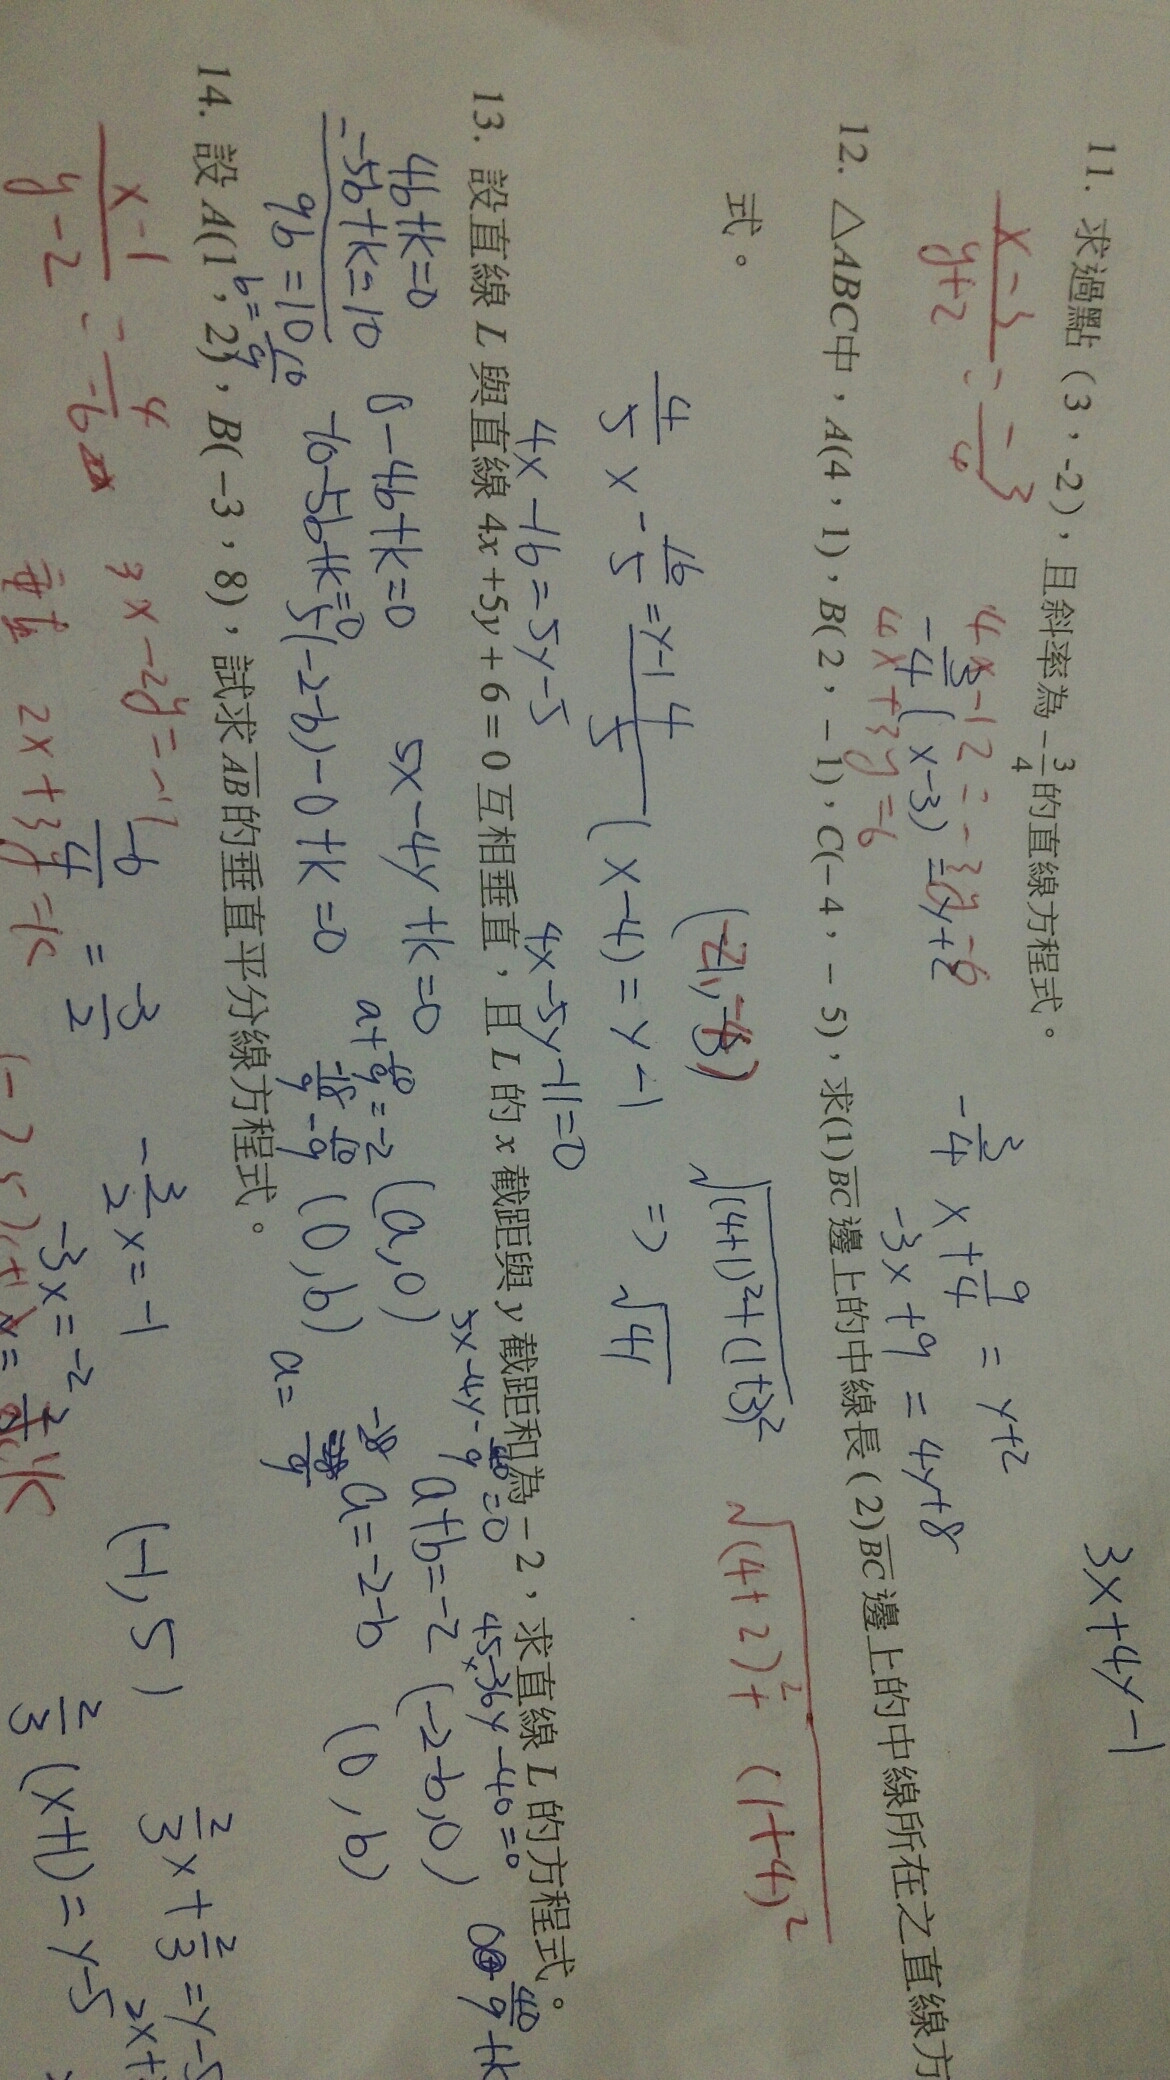 3x+4y-1
11. 求過點 (3,-2),且斜率為-3/4的直線方程式。
x-3/y+2 = -3/4
4x-12=-3y-6
4x+3y=6
-3/4(x-3)=y+2
-3/4x+9/4=y+2
-3x+9=4y+8
12. △ABC中,A(4,1),B(2,-1),C(-4,-5),求(1)BC邊上的中線長(2)BC邊上的中線所在之直線方
式。
√(4+1)²+(1+3)²
√(4+2)²+(1+4)²
4/5(x-4)=y-1
⇒ √41
4/5x-16/5=y-1
4x-16=5y-5
4x-5y-11=0
13. 設直線 L 與直線 4x+5y+6=0互相垂直,且 L 的 x 截距與 y 截距和為-2,求直線 L 的方程式。
5x-4y-40/9=0
45x-36y-40=0
4b+k=0
-5b+k=10
9b=10
b=10/9
0-4b+k=0
-10-5b+k=0
5(-2-b)-0+k=0
5x-4y+k=0
a+10/9=-2
-18/9-10/9
(a,0)
(0,b)
a+b=-2
a=-2-b
(-2-b,0)
(0,b)
a=
14. 設A(1,2),B(-3,8),試求AB的垂直平分線方程式。
x-1/y-2 = 4/-6
3x-2y=-1
2x+3y=k
-6/4 = -3/2
-3/2x=-1
-3x=-2
(-1,5)
2/3x+2/3=y-5
2/3(x+1)=y-5